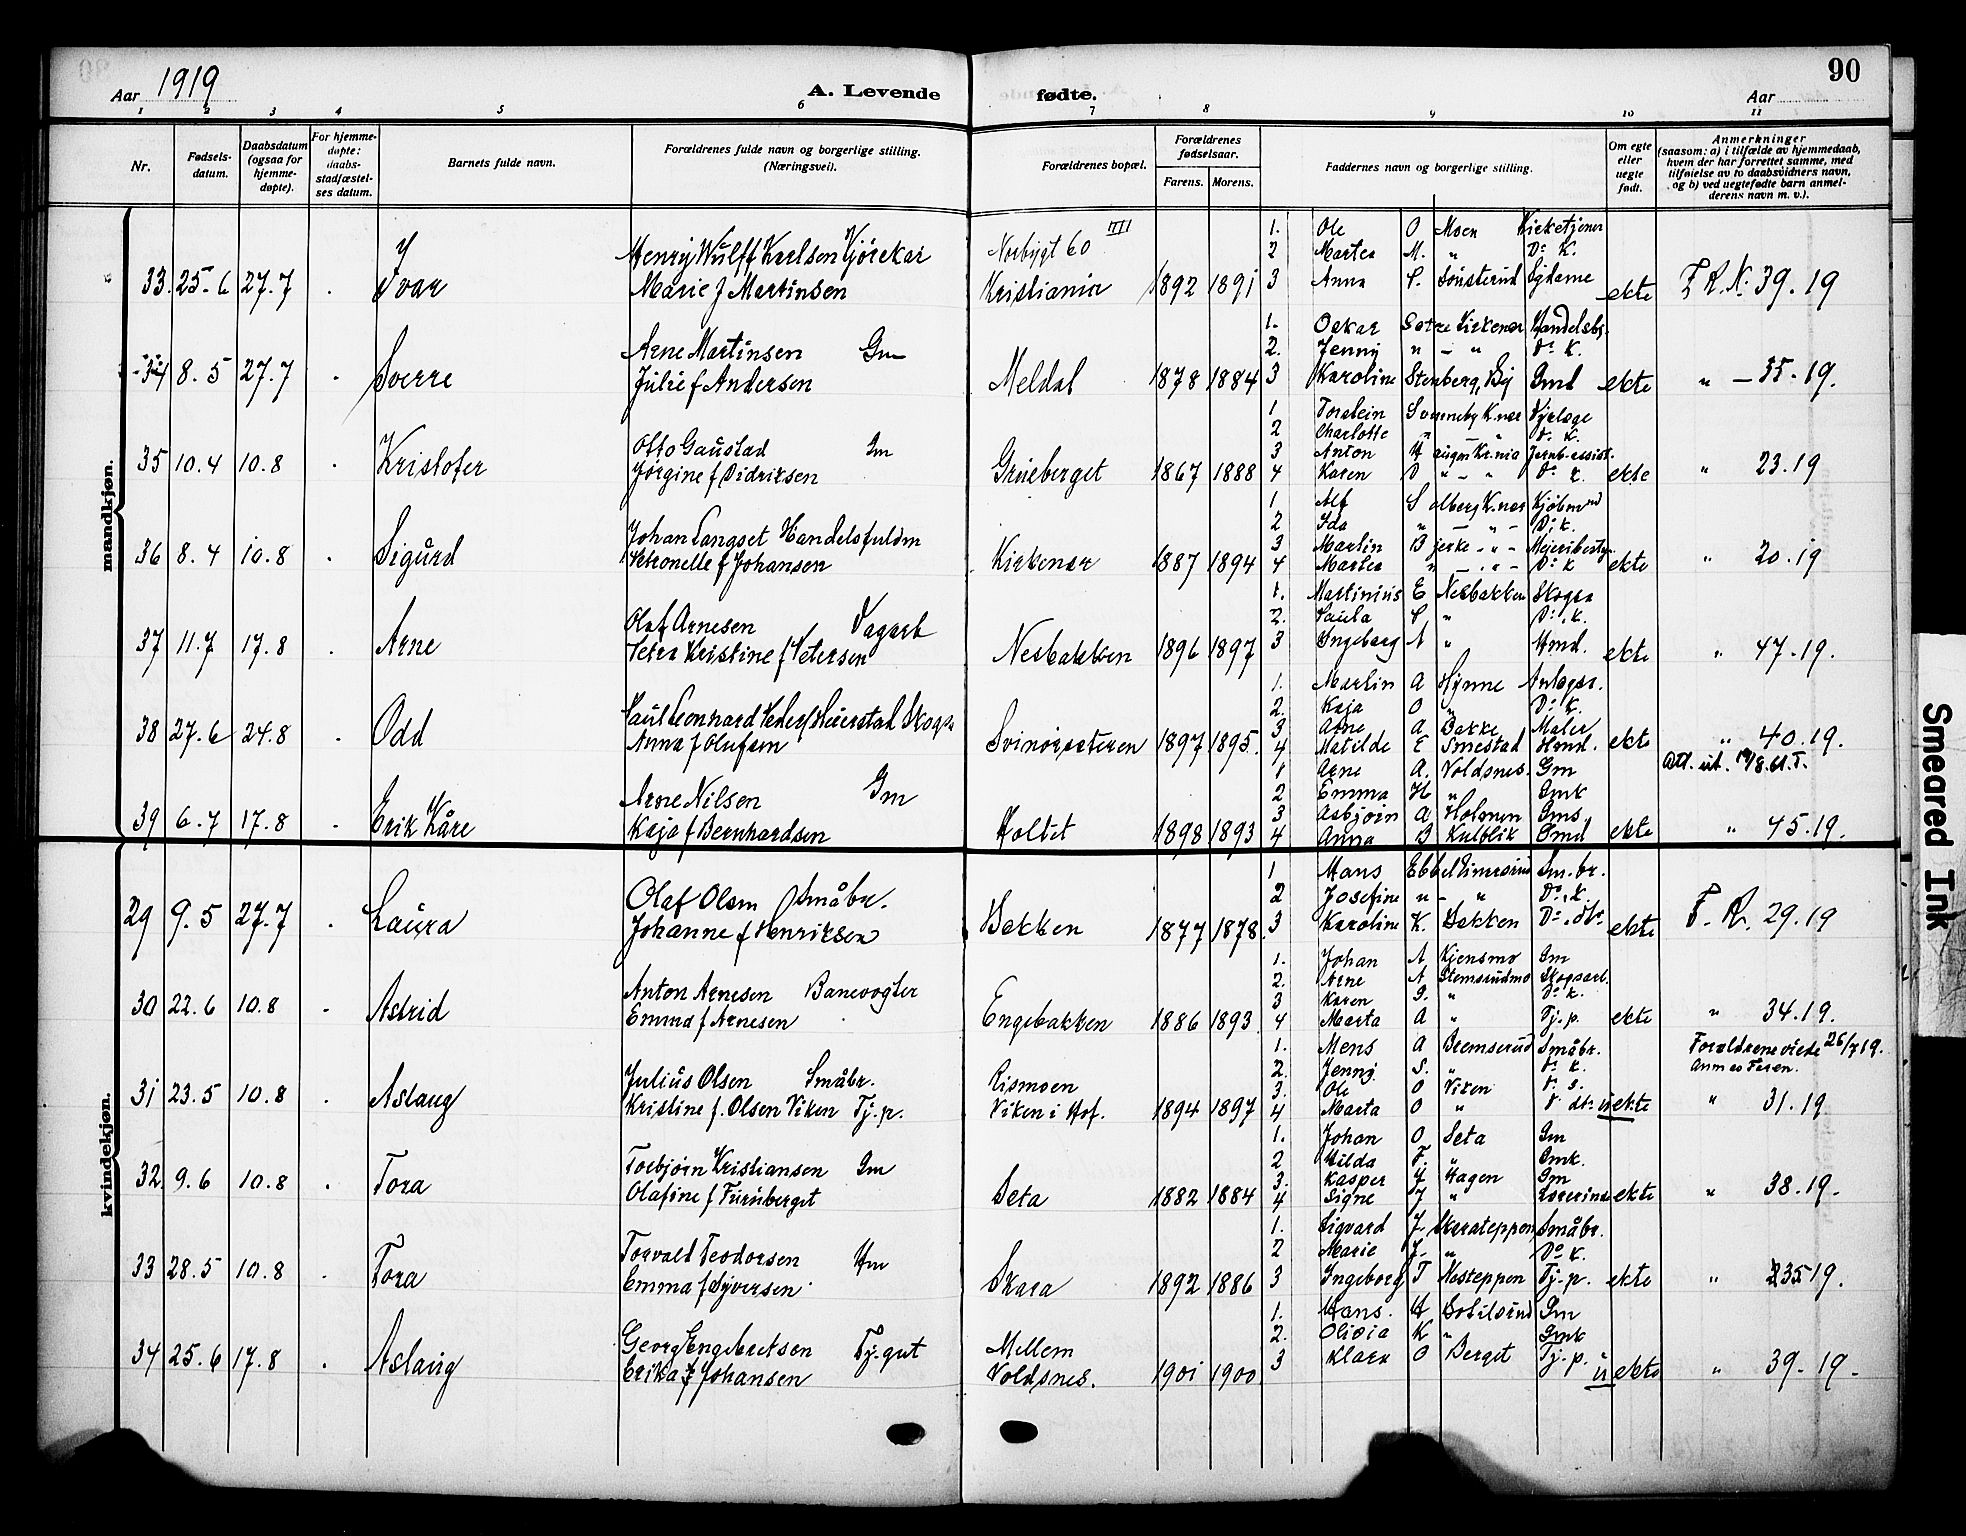 90
Aar 1919
A. Levende fødte.
Aar
1 2 3 4 5 6 7 8 9 10 11
Nr.
Fødsels-
datum.
Daabsdatum
(ogsaa for
hjemme-
døpte).
For hjemme-
døpte:
daabs-
stadfæstel-
ses datum.
Barnets fulde navn.
Forældrenes fulde navn og borgerlige stilling.
(Næringsvei).
Forældrenes bopæl.
Forældrenes
fødselsaar.
Farens. Morens.
Faddernes navn og borgerlige stilling.
Om egte
eller
uegte
født.
Anmerkninger
(saasom: a) i tilfælde av hjemmedaab,
hvem der har forrettet samme, med
tilføielse av to daabsvidners navn,
og b) ved uegtefødte barn anmel-
derens navn m. v.).
mandkjøn.
33. 25.6 27.7 Ivar
Henry Wulff Karlsen Kjørekar
Marie f Martinsen
Norbygt 60 III
Kristiania 1892 1891
1. Ole O Moen Kirketjener
2 Martea M. " Do K.
3 Anna S. Sønsterud Sydame
ekte F. R. N. 39.19
34 8.5 27.7 Sverre
Arne Martinsen Gm
Julie f Andersen
Meldal 1878 1884
1. Oskar Sætre Kirkenær Handelsb.
2. Jenny " - " Do K.
3 Karoline Stenberg, By Gmd
ekte " - 35-19.
35 10.4 10.8 Kristofer
Otto Gaustad Gm
Jørgine f Didriksen
Grueberget 1867 1888
1 Torstein Sormeby K.nær
2 Charlotte " - " Do. K.
3 Anton Haugen Kr.nia Jernb-assist.
4 Karen D " - " Do K.
ekte " 23.19
36 8.4 10.8 Sigurd
Johan Langset Handelsfuldm
Petronelle f Johansen
Kirkenær 1887 1894
1 Alf Solberg K.nær Kjøbmnd
2 Ida " - " - Do K.
3 Martin Bjerke - " - Meieribesty.
4 Martea " - " - Do K
ekte " 20.19
37 11.7 17.8 Arne
Olaf Arnesen Dagarb
Petra Kristine f Petersen
Nesbakken 1896 1897
1. Martinius E Nesbakken Skogsa
2. Paula S " Do. K.
3 Ingeborg A " Hmd.
ekte " 47-19.
38 27.6 24.8 Odd
Paul Leonhard Pedersen Skogsa
Anna f Olufsen
Svinørsæteren 1897 1895.
1. Martin A Hynne Anlægsar.
2. Kaja O " Do K.
3 Arne A Bakke Maler
4 Matilde E Smestad Hmd.
ekte " 40.19.
Att. ut. 19/8.61. T.
39 6.7 17.8 Erik Kåre
Arne Nilsen Gm
Kaja f Bernhardsen
Holtet 1898 1893
1 Arne A. Voldsnes. Gm
2 Emma H " Gmk
3 Asbjørn A Holmen Gms
4 Anna B Kulblik Gmd
ekte " 45.19.
kvindekjøn.
29 9.5 27.7 Laura
Olaf Olsen Småbr.
Johanne f Henriksen
Bakken 1877 1878.
1 Hans Sm.br.
2 Josefine " - " Do. K.
3 Karoline K. Bakken Do. dtr.
ekte F. R. 29.19
30 22.6 10.8 Astrid
Anton Arnesen Banevogter
Emma f Arnesen
Engebakken 1886 1893.
1. Johan A Kjensmo Gm
2. Arne A Stemsrudmo Skogsarb.
3 Karen S. " Do K.
4 Marta A " Tj.p.
ekte " 34.19.
31 23.5 10.8 Aslaug
Julius Olsen Småbr.
Kristine f. Olsen Viken Tj.p.
Rismoen
Viken i Hof. 1894 1897
1. Mens A Bremserud Småbr.
2. Jenny S. " Do K.
3. Ole O Viken D. s.
4 Marta O " D dtr
uekte " 31.19.
Forældrene viede 26/7 19.
Anm. es Feren.
32 9.6 10.8 Tora
Torbjørn Kristiansen Gm
Olafine f Furuberget
Seta 1882 1884
1. Johan O Seta Gm
2 Hilda F. " Gmk.
3. Kasper J Hagen Gm
4 Signe J " Lærerinde
ekte " 38.19.
33 28.5 10.8 Tora
Torvald Teodorsen Hm
Emma f Syversen
Skara 1892 1886
1. Sigvard J. Skarateppen Småbr.
2 Marie J. " Do K.
3 Ingeborg T Mosteppen Tj.p.
ekte " 35 19.
34 25.6 17.8 Aslaug
Georg Engebretsen Tj.gut
Erika f Johansen
Mellem
Voldsnes. 1901 1900
1. Hans. H Botilsrud Gm
2. Olivia K " Gmk
3 Klara O Berget Tj.p.
uekte " 39-19.
Smeared Ink